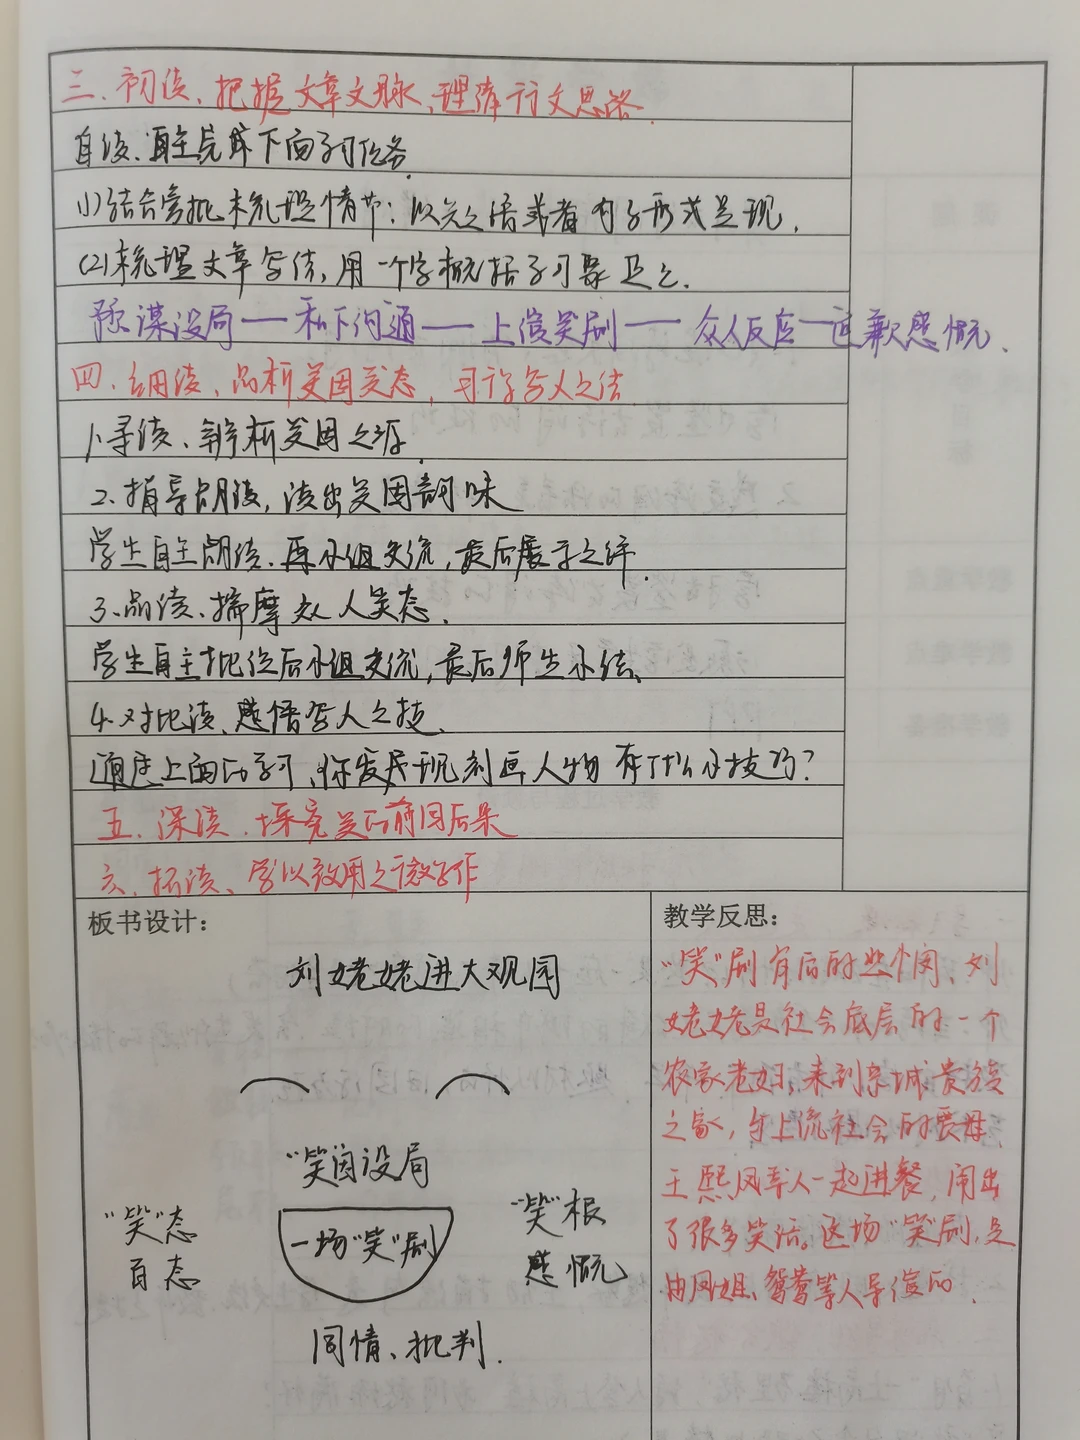 三、初读、把握文章文脉、理清行文思路.
自读、自主完成下面学习任务.
(1)结合旁批梳理情节：以 或者句子形式呈现.
(2)梳理文章写法,用一个字概括
预谋设局——私下沟通——上演笑剧——众人反应—道歉感慨.
四、细读、品析笑因笑态,习得写人之法
1.寻读、辨析笑因之源.
2.指导朗读,读出笑因韵味
学生自主朗读.再小组交流,最后展示之评.
3.品读、揣摩众人笑态.
学生自主批注后小组交流,最后师生小结.
4.对比读、感悟写人之技.
通过上面的学习,你发现刻画人物有什么小技巧?
五、深读.探究笑的前因后果
六、拓读、学以致用之微写作
板书设计：
刘姥姥进大观园
"笑"因设局
"笑"态
百态
一场"笑"剧
"笑"根
感慨
同情、批判.
教学反思：
"笑"剧背后的 ,刘
姥姥是社会底层的一个
农家老妇,来到京城贵族
之家,与上流社会的贾母
王熙凤等人一起进餐,闹出
了很多笑话。这场"笑"剧,是
由凤姐、鸳鸯等人导演的.